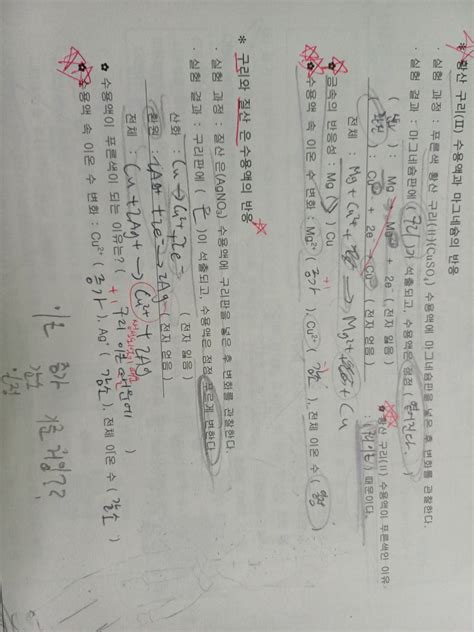 * 황산 구리(II) 수용액과 마그네슘의 반응
· 실험 과정 : 푸른색 황산 구리(II)(CuSO₄) 수용액에 마그네슘판을 넣은 후 변화를 관찰한다.
· 실험 결과 : 마그네슘판에 ( 구리 )가 석출되고, 수용액은 점점 ( 옅어진다. )
( 산화 ) : Mg → Mg²⁺ + 2e⁻ (전자 잃음)
( 환원 ) : Cu²⁺ + 2e⁻ → Cu (전자 얻음)
☆ 황산 구리(II) 수용액이 푸른색인 이유
: ( 구리 이온 ) 때문이다.
전체 : Mg + Cu²⁺ + 2e⁻ → Mg²⁺ + 2e⁻ + Cu
✿ 금속의 반응성 : Mg ( > ) Cu
✿ 수용액 속 이온 수 변화 : Mg²⁺ ( 증가 ), Cu²⁺ ( 감소 ), 전체 이온 수 ( 일정 )
* 구리와 질산 은 수용액의 반응
· 실험 과정 : 질산 은(AgNO₃) 수용액에 구리판을 넣은 후 변화를 관찰한다.
· 실험 결과 : 구리판에 ( 은 )이 석출되고, 수용액은 점점 푸르게 변한다.
산화 : Cu → Cu²⁺ + 2e⁻ (전자 잃음)
환원 : 2Ag⁺ + 2e⁻ → 2Ag (전자 얻음)
전체 : Cu + 2Ag⁺ → Cu²⁺ + 2Ag
✿ 수용액이 푸른색이 되는 이유는? ( 구리 이온 때문에 )
✿ 수용액 속 이온 수 변화 : Cu²⁺ ( 증가 ), Ag⁺ ( 감소 ), 전체 이온 수 ( 감소 )